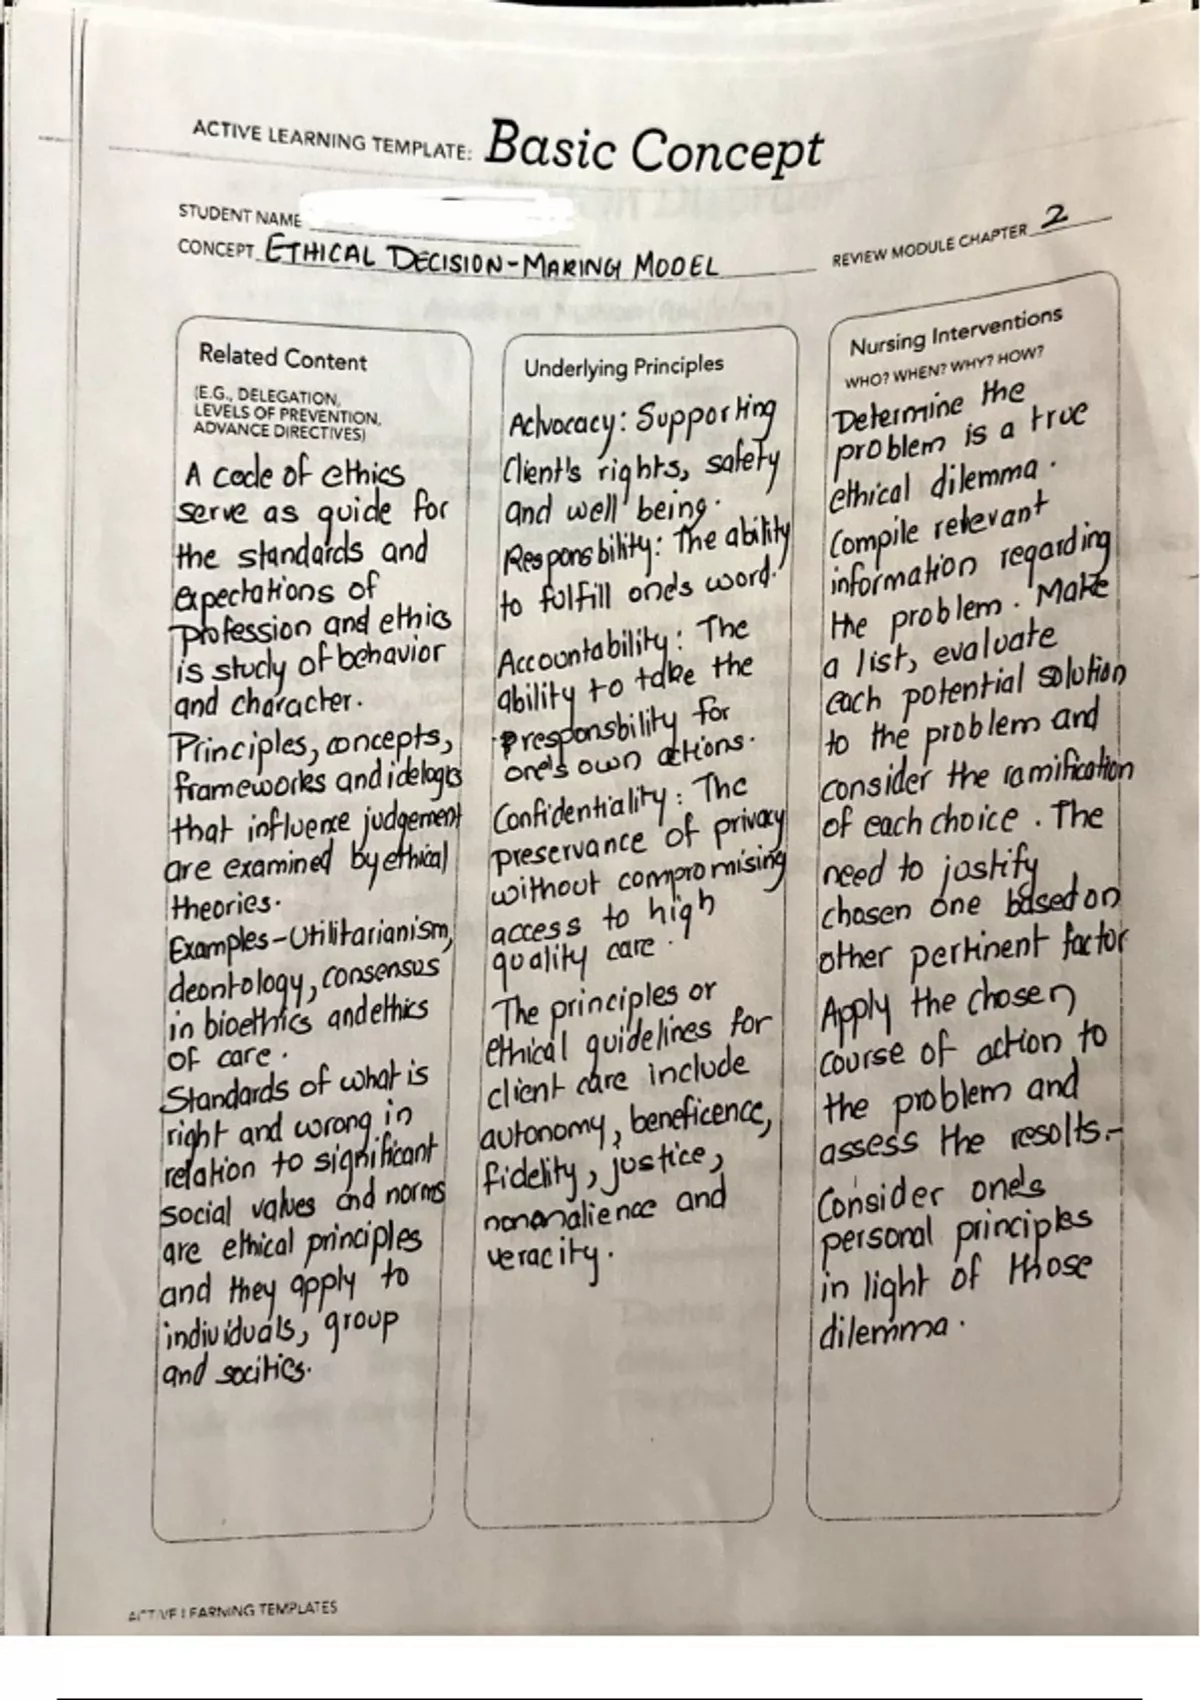 ACTIVE LEARNING TEMPLATE: Basic Concept
STUDENT NAME
CONCEPT ETHICAL DECISION-MAKING MODEL
REVIEW MODULE CHAPTER 2
Related Content
(E.G., DELEGATION,
LEVELS OF PREVENTION,
ADVANCE DIRECTIVES)
A code of ethics
serve as guide for
the standards and
expectations of
profession and ethics
is study of behavior
and character.
Principles, concepts,
frameworks and idelogis
that influence judgement
are examined by ethical
theories.
Examples-Utilitarianism,
deontology, consensus
in bioethics and ethics
of care.
Standards of what is
right and wrong in
relation to significant
social values and norms
are ethical principles
and they apply to
individuals, group
and socities.
Underlying Principles
Advocacy: Supporting
Client's rights, safety
and well being.
Responsbility: The ability
to fulfill one's word.
Accountability: The
ability to take the
responsbility for
one's own actions.
Confidentiality: The
preservance of privacy
without compromising
access to high
quality care.
The principles or
ethical guidelines for
client care include
autonomy, beneficence,
fidelity, justice,
nonmalience and
veracity.
Nursing Interventions
WHO? WHEN? WHY? HOW?
Determine the
problem is a true
ethical dilemma.
Compile relevant
information regarding
the problem. Make
a list, evaluate
each potential solution
to the problem and
consider the ramification
of each choice. The
need to justify
chosen one based on
other pertinent factor
Apply the chosen
course of action to
the problem and
assess the results.-
Consider one's
personal principles
in light of those
dilemma.
ACTIVE LEARNING TEMPLATES